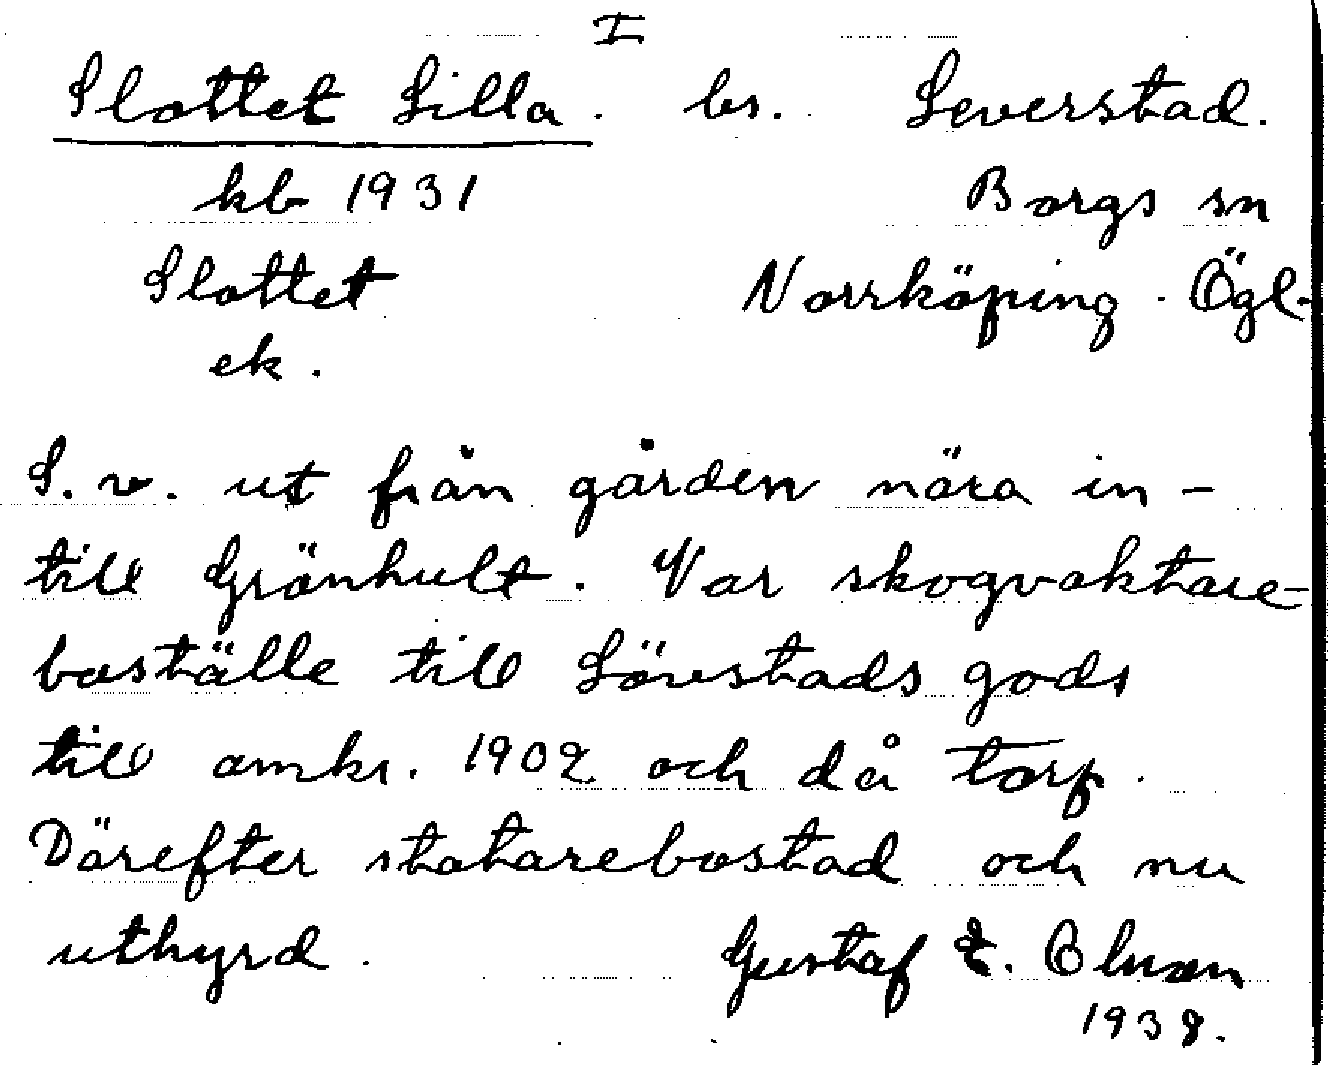 I
Slottet Lilla. bs. Leverstad.
kb 1931 Borgs sn
Slottet Norrköping. Ögl.
ek.
S. v. ut från gården nära in-
till Grönhult. Var skogvaktare-
boställe till Lövestads gods
till omkr. 1902 och då torp.
Därefter statarebostad och nu
uthyrd. Gustaf E. Olsson
1938.